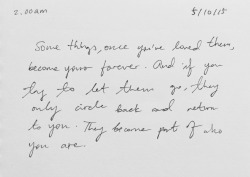 2.00am 5/10/15
Some things, once you've loved them,
become yours forever. And if you
try to let them go, they
only circle back and return
to you. They become part of who
you are.